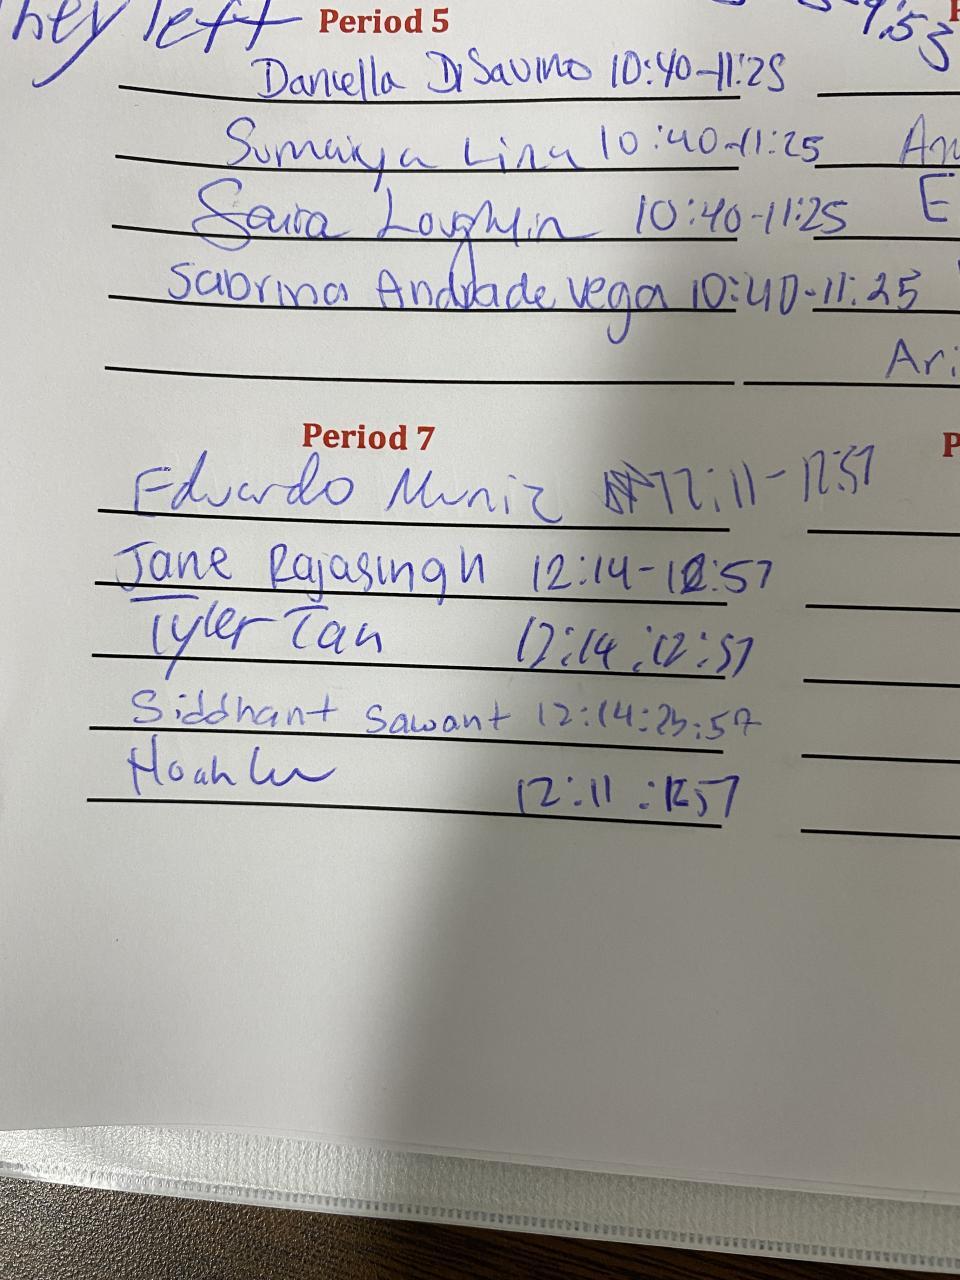 they left
Period 5
9:53
Daniella DiSavino 10:40-11:25
Sumaiya Lira 10:40-11:25
An
Saira Loughlin 10:40-11:25
E
Sabrina Andrade vega 10:40-11:25
Ari
Period 7
P
Eduardo Muniz 12:11-12:57
Jane Rajasingh 12:14-12:57
Tyler Tan 12:14:12:57
Siddhant Sawant 12:14:23:57
Noah 12:11:1257